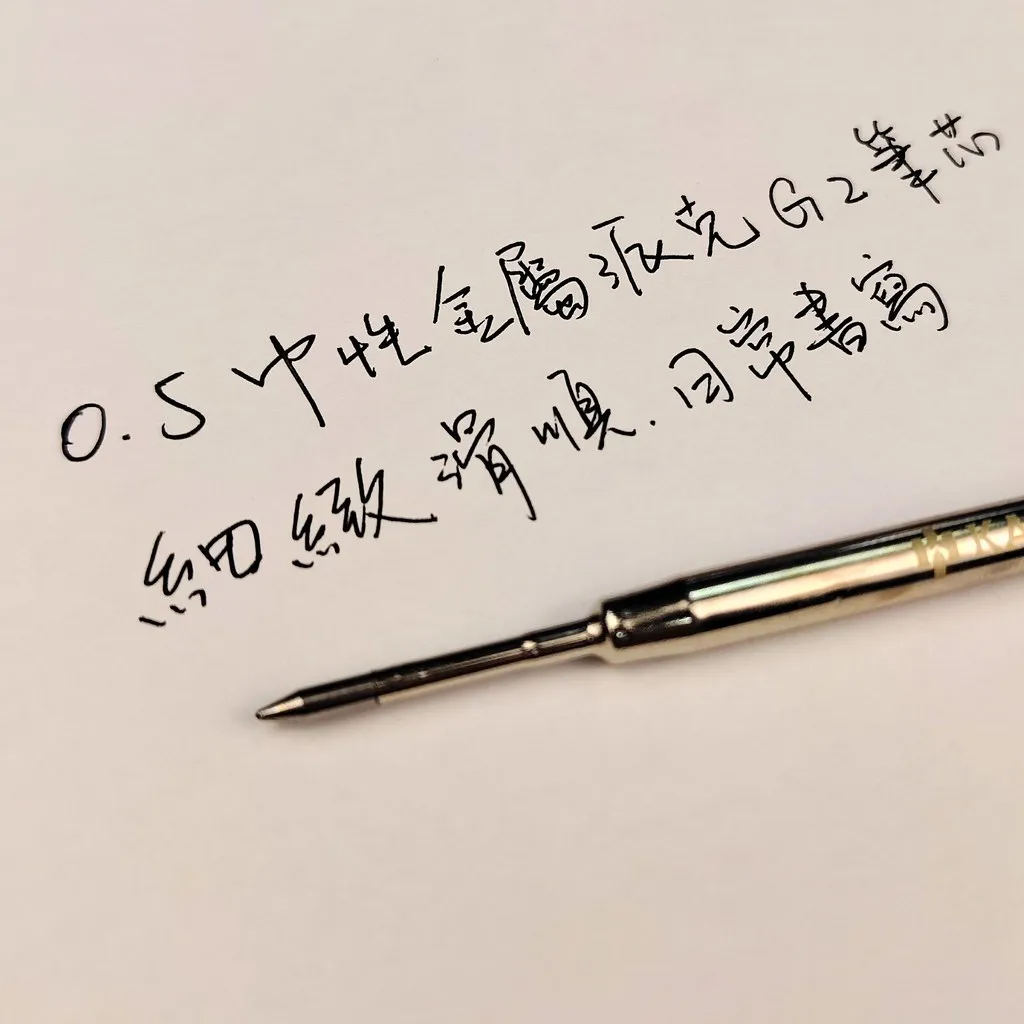 0.5中性金屬派克G2筆芯
細緻滑順.日常書寫
KA